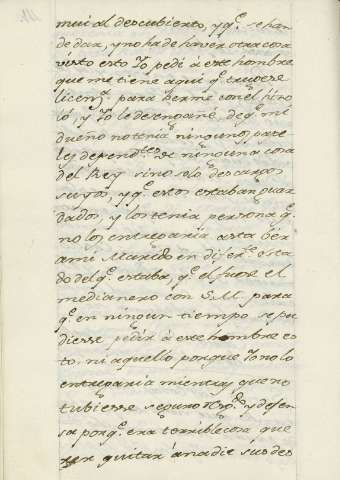 mui al descubierto, y q.e se han
de dar, y no ha de haver otra cosa
visto esto Yo pedi à este hombre
que me tiene aqui q.e truxese
licen.a para berme con el hizo
lo, y Yo le desengañe, de q.e mi
dueño no tenia ningunos pape
les dependtes de ninguna cosa
del Rey sino solo descargos
suyos, y q.e estos estaban guar
dados, y los tenia persona q.e
no los entregaria asta ber
a mi Marido en difer.te esta
do del q.e estaba, q.e el fuese el
medianero con S. M. para
q.e en ningun tiempo se pu
diesse pedir à ese hombre es
to, ni aquello porque Yo no lo
entregaria mientras que no
tubiesse seguro nro, y defen
sa porq.e era terrible cosa que
rer quitar à nadie sus des